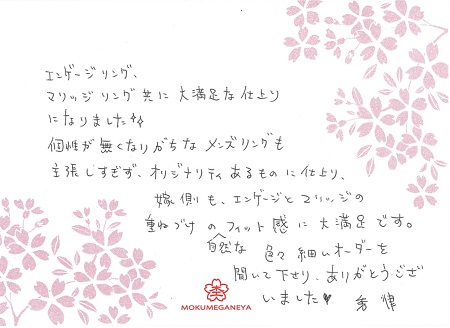 エンゲージリング、
マリッジリング共に大満足な仕上り
になりました✨
個性が無くなりがちなメンズリングも
主張しすぎず、オリジナリティあるものに仕上り、
嫁側も、エンゲージとマリッジの
重ねづけのフィット感に大満足です。
自然な
色々細いオーダーを
聞いて下さり、ありがとうござ
いました♥
MOKUMEGANEYA